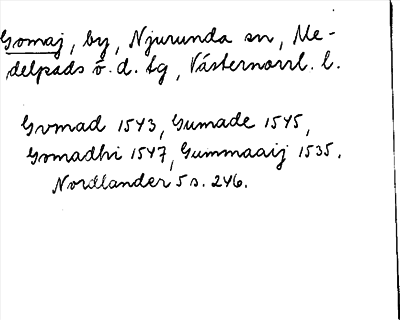 Gomaj, by, Njurunda sn, Me-
delpads ö. d. tg, Västernorrl. l.
Gvmad 1543, Gumade 1545,
Gomadhi 1547, Gummaaij 1535.
Nordlander 5 s. 246.